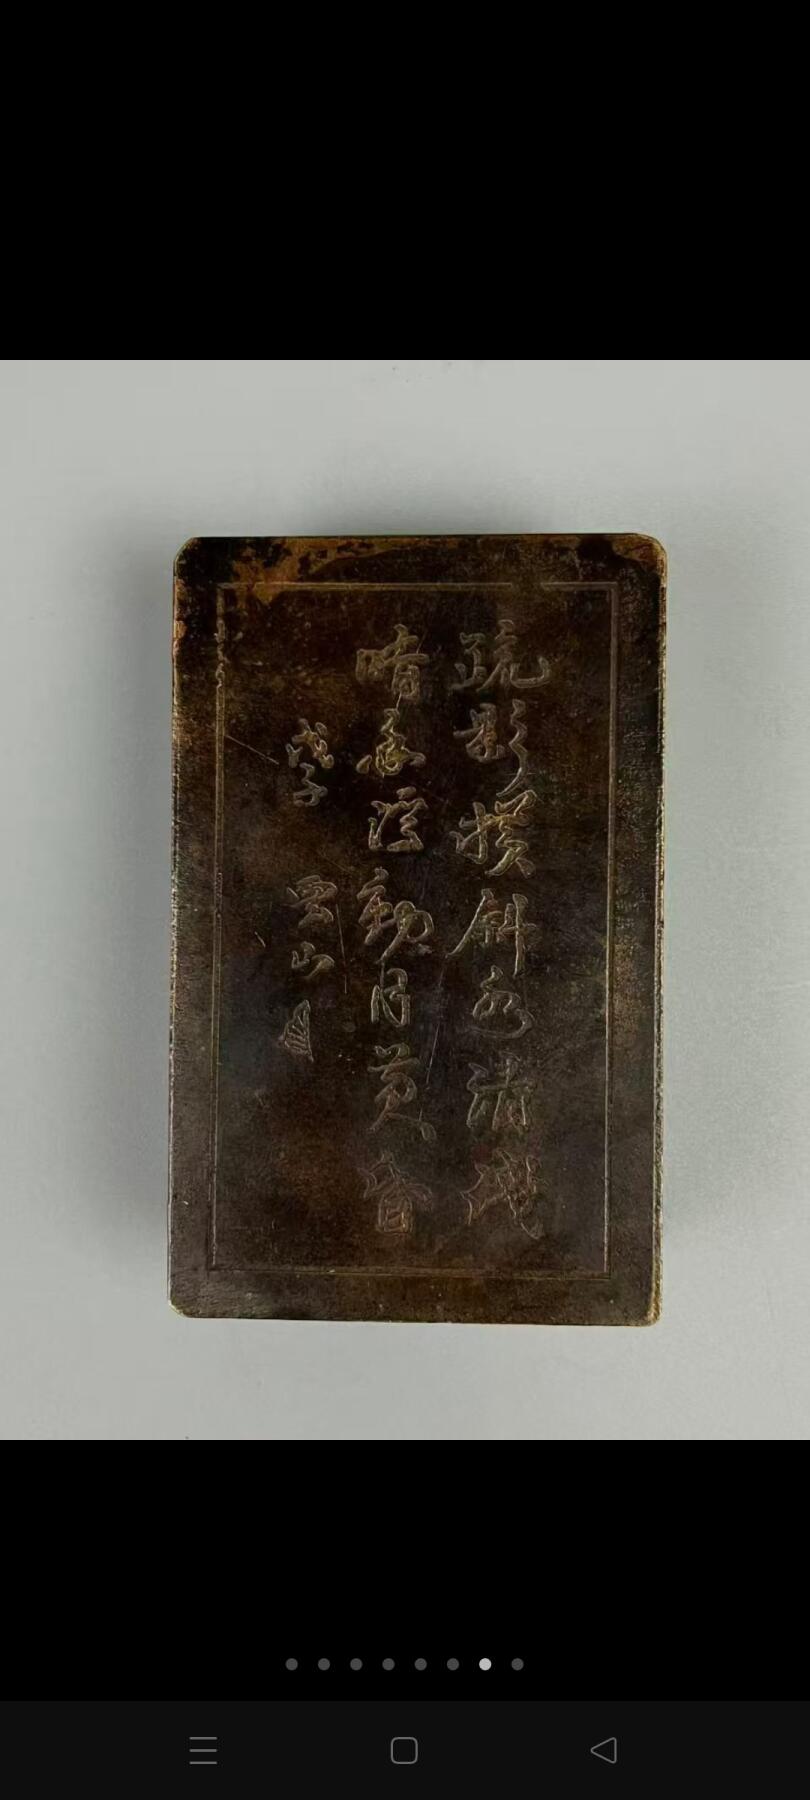 疏影横斜水清浅
暗香浮動月黄昏
戊子 雲山